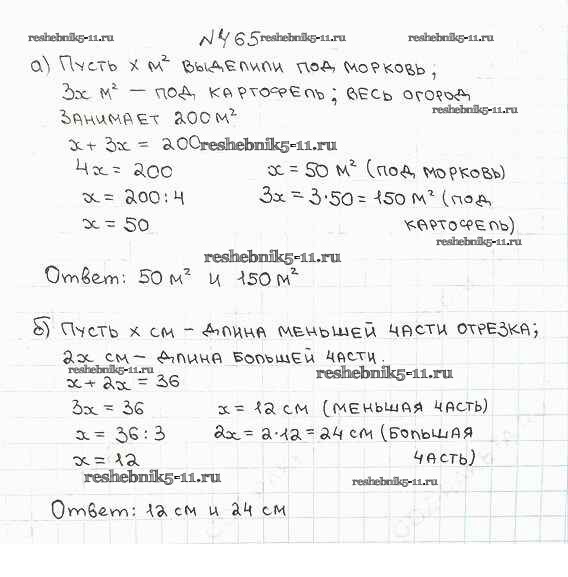 reshebnik5-11.ru №465 reshebnik5-11.ru reshebnik5-11.ru
а) Пусть x м² выделили под морковь;
3x м² – под картофель; весь огород
reshebnik5-11.ru
занимает 200 м²
x + 3x = 200 reshebnik5-11.ru
4x = 200 x = 50 м² (под морковь)
x = 200 : 4 3x = 3·50 = 150 м² (под
x = 50 картофель)
reshebnik5-11.ru
reshebnik5-11.ru
Ответ: 50 м² и 150 м²
б) Пусть x см – длина меньшей части отрезка;
2x см – длина большей части.
reshebnik5-11.ru reshebnik5-11.ru
x + 2x = 36
3x = 36 x = 12 см (меньшая часть)
x = 36 : 3 2x = 2·12 = 24 см (большая
x = 12 часть)
reshebnik5-11.ru reshebnik5-11.ru
Ответ: 12 см и 24 см